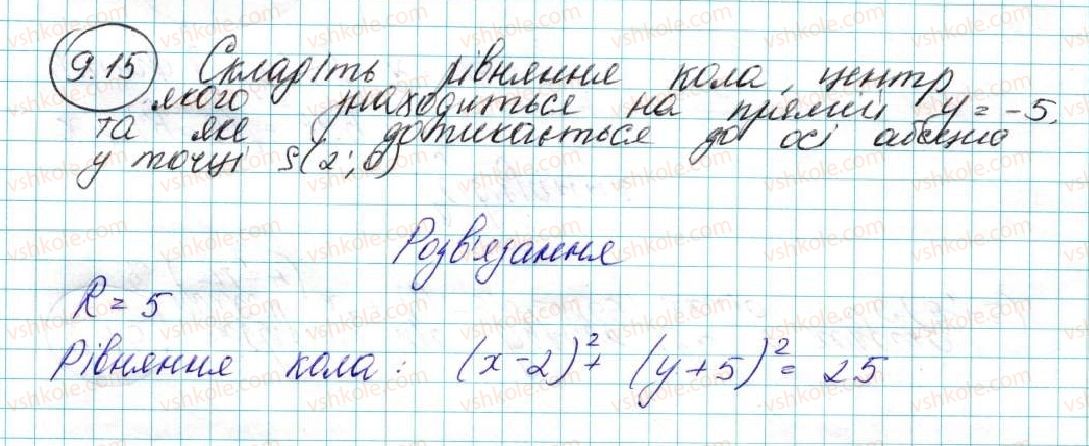 9.15 Складіть рівняння кола, центр
якого знаходиться на прямій y = -5,
та яке дотикається до осі абсцис
у точці S(2; 0)
Розв'язання
R = 5
Рівняння кола: (x-2)² + (y+5)² = 25